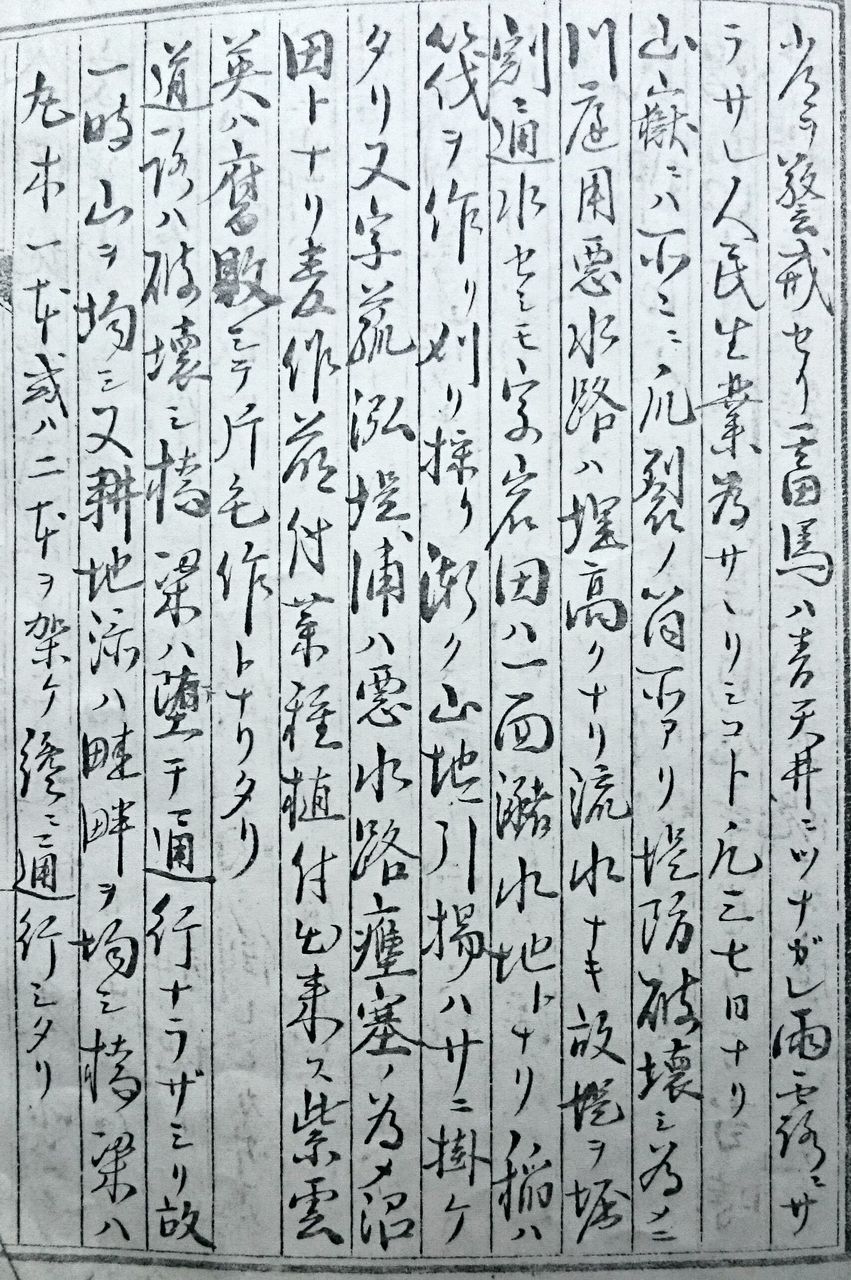 ヲ警戒セリ畜馬ハ青天井ニツナガレ雨露ニサ
ラサレ人民生業為サヾリシコト凡三七日ナリ
山嶽ニハ所々ニ瓦裂ノ箇所アリ堤防破壊シ為メニ
川庭用悪水路ハ埋高クナリ流水ナキ故堤ヲ堀
割通水セシモ字岩田ハ一面瀦水地トナリ稲ハ
筏ヲ作リ刈リ採リ漸ク山地ニ引揚ハサニ掛ケ
タリ又字菰泓堤浦ハ悪水路壅塞ノ為メ沼
田トナリ麦作蒔付菜種植付出来ス紫雲
英ハ腐敗シテ片毛作トナリタリ
道路ハ破壊シ橋梁ハ墮チ通行ナラザシリ故
一時山ヲ均シ又耕地添ハ畦畔ヲ均シ橋梁ハ
丸木一本或ハ二本ヲ架ケ漸ニ通行シタリ